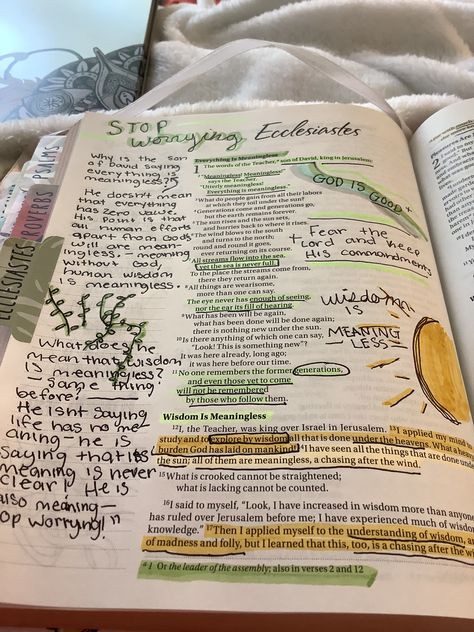 STOP
Worrying
Ecclesiastes
PSALMS
PROVERBS
ECCLESIASTES
Why is the son
of David saying
everything is
meaningless?
He doesn't mean
that everything
has zero value.
His point is that
all human efforts
apart from God's
will are mean-
ingless. - meaning
without God,
human wisdom
is meaningless.
What does he
mean that wisdom
is meaningless?
- same thing
before!
He isnt saying
life has no me-
aning - he is
saying that its
meaning is never
clear! He is
also meaning -
op worrying!"
GOD IS GOOD
Fear the
Lord and keep
His commandments
Wisdom
IS
MEANING
LESS
Everything Is Meaningless
1 The words of the Teacher, a son of David, king in Jerusalem:
2 "Meaningless! Meaningless!"
says the Teacher.
"Utterly meaningless!
Everything is meaningless."
3 What do people gain from all their labors
at which they toil under the sun?
4 Generations come and generations go,
but the earth remains forever.
5 The sun rises and the sun sets,
and hurries back to where it rises.
6 The wind blows to the south
and turns to the north;
round and round it goes,
ever returning on its course.
7 All streams flow into the sea,
yet the sea is never full.
To the place the streams come from,
there they return again.
8 All things are wearisome,
more than one can say.
The eye never has enough of seeing,
nor the ear its fill of hearing.
9 What has been will be again,
what has been done will be done again;
there is nothing new under the sun.
10 Is there anything of which one can say,
"Look! This is something new"?
It was here already, long ago;
it was here before our time.
11 No one remembers the former generations,
and even those yet to come
will not be remembered
by those who follow them.
Wisdom Is Meaningless
12 I, the Teacher, was king over Israel in Jerusalem. 13 I applied my mind
study and to explore by wisdom all that is done under the heavens. What a heavy
burden God has laid on mankind! 14 I have seen all the things that are done
the sun; all of them are meaningless, a chasing after the wind.
15 What is crooked cannot be straightened;
what is lacking cannot be counted.
16 I said to myself, "Look, I have increased in wisdom more than anyone
has ruled over Jerusalem before me; I have experienced much of wisdom
knowledge." 17 Then I applied myself to the understanding of wisdom, an
of madness and folly, but I learned that this, too, is a chasing after the wi
a 1 Or the leader of the assembly; also in verses 2 and 12